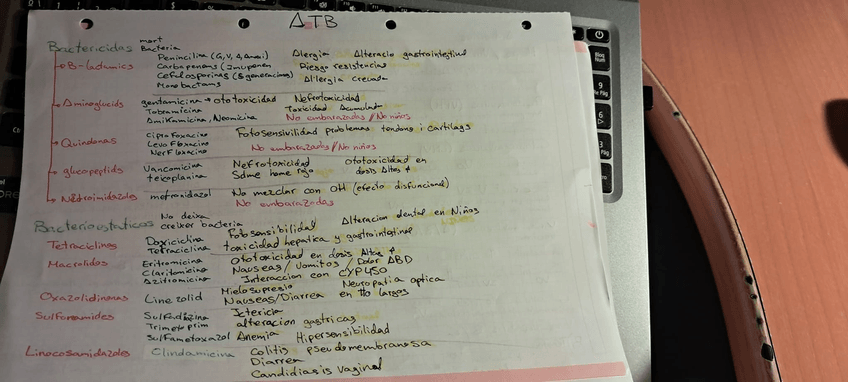 ATB
Bactericidas mort Bacteria
Penincilina (G, V, A, Amoxi) Alergia Alteracio gastrointestinal
B-Lactamics Carbapenems (Imupenem Riesgo resistencias
Cefalosporinas (5 generacions) Al·lergia creuada
Monobactams
Aminoglucids gentamicina → ototoxicidad Nefrotoxicidad
Tobramicina Toxicidad Acumulad
Amikamicina, Neomicina No embarazadas / No niños
Quinolonas Ciprofloxacino Fotosensivilidad problemas tendons i cartilags
Levofloxacino
Norfloxacino No embarazadas / No niños
glucopeptids Vancomicina Nefrotoxicidad ototoxicidad en
teicoplanina Sdme home rojo dosis Altas
Nitroimidazoles metronidazol No mezclar con OH (efecto disfuncional)
No embarazadas
Bacteriostaticos No deixa creixer bacteria
Fotosensibilidad Alteracion dental en Niños
Tetraciclinas Doxiciclina
Tetraciclina toxicidad hepatica y gastrointestinal
Macrolidos Eritromicina Ototoxicidad en dosis Altas
Claritomicina Nauseas / Vomitos / Dolor ABD
Azitromicina Interaccion con CYP450
Oxazolidinonas Linezolid Mielosupresio Neuropatia optica
Nauseas/Diarrea en tto largos
Sulfonamides Sulfadiazina Ictericia
Trimetoprim alteracion gastricas
Sulfametoxazol Anemia Hipersensibilidad
Lincosamidazoles Clindamicina Colitis pseudomembranosa
Diarrea
Candidiasis vaginal